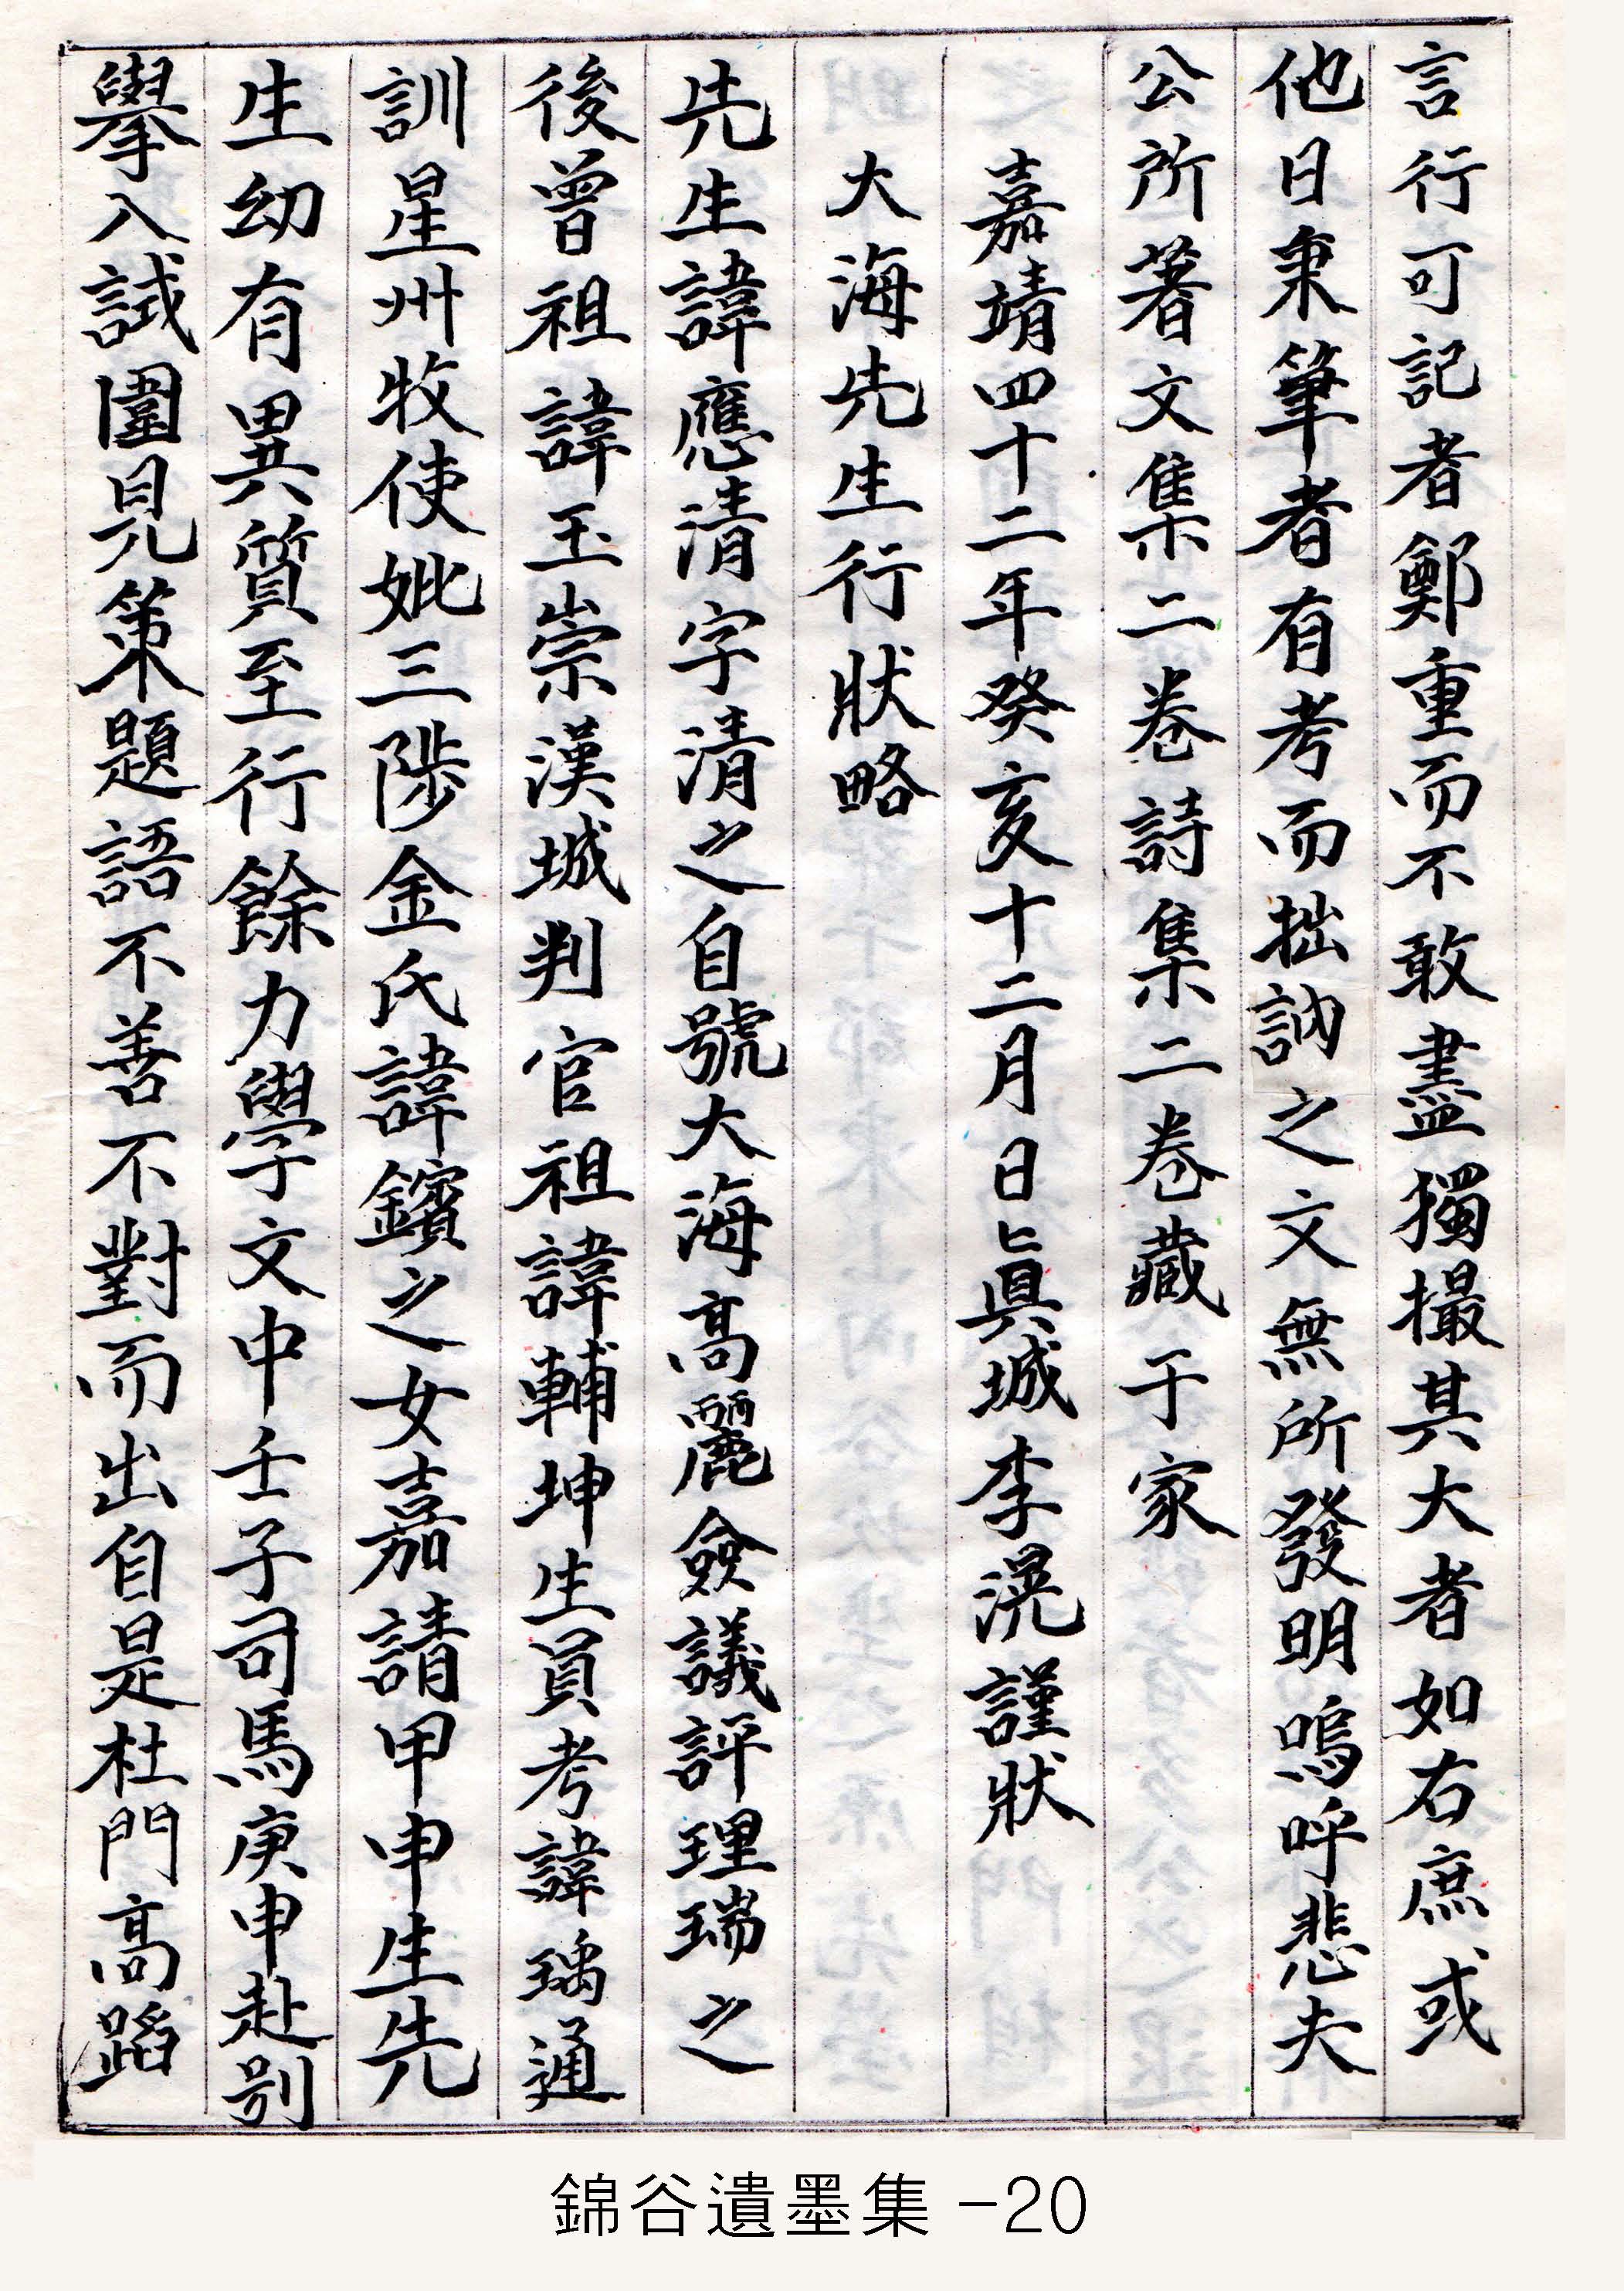 言行可記者鄭重而不敢盡獨撮其大者如右庶或
他日秉筆者有考而拙訥之文無所發明嗚呼悲夫
公所著文集二卷詩集二卷藏于家
嘉靖四十二年癸亥十二月日眞城李滉謹狀
大海先生行狀略
先生諱應清字清之自號大海高麗僉議評理瑞之
後曾祖諱玉崇漢城判官祖諱輔坤生員考諱瑀通
訓星州牧使妣三陟金氏諱鑌之女嘉請甲申生先
生幼有異質至行餘力學文中壬子司馬庚申赴別
擧入試圍見策題語不善不對而出自是杜門高蹈
錦谷遺墨集 -20